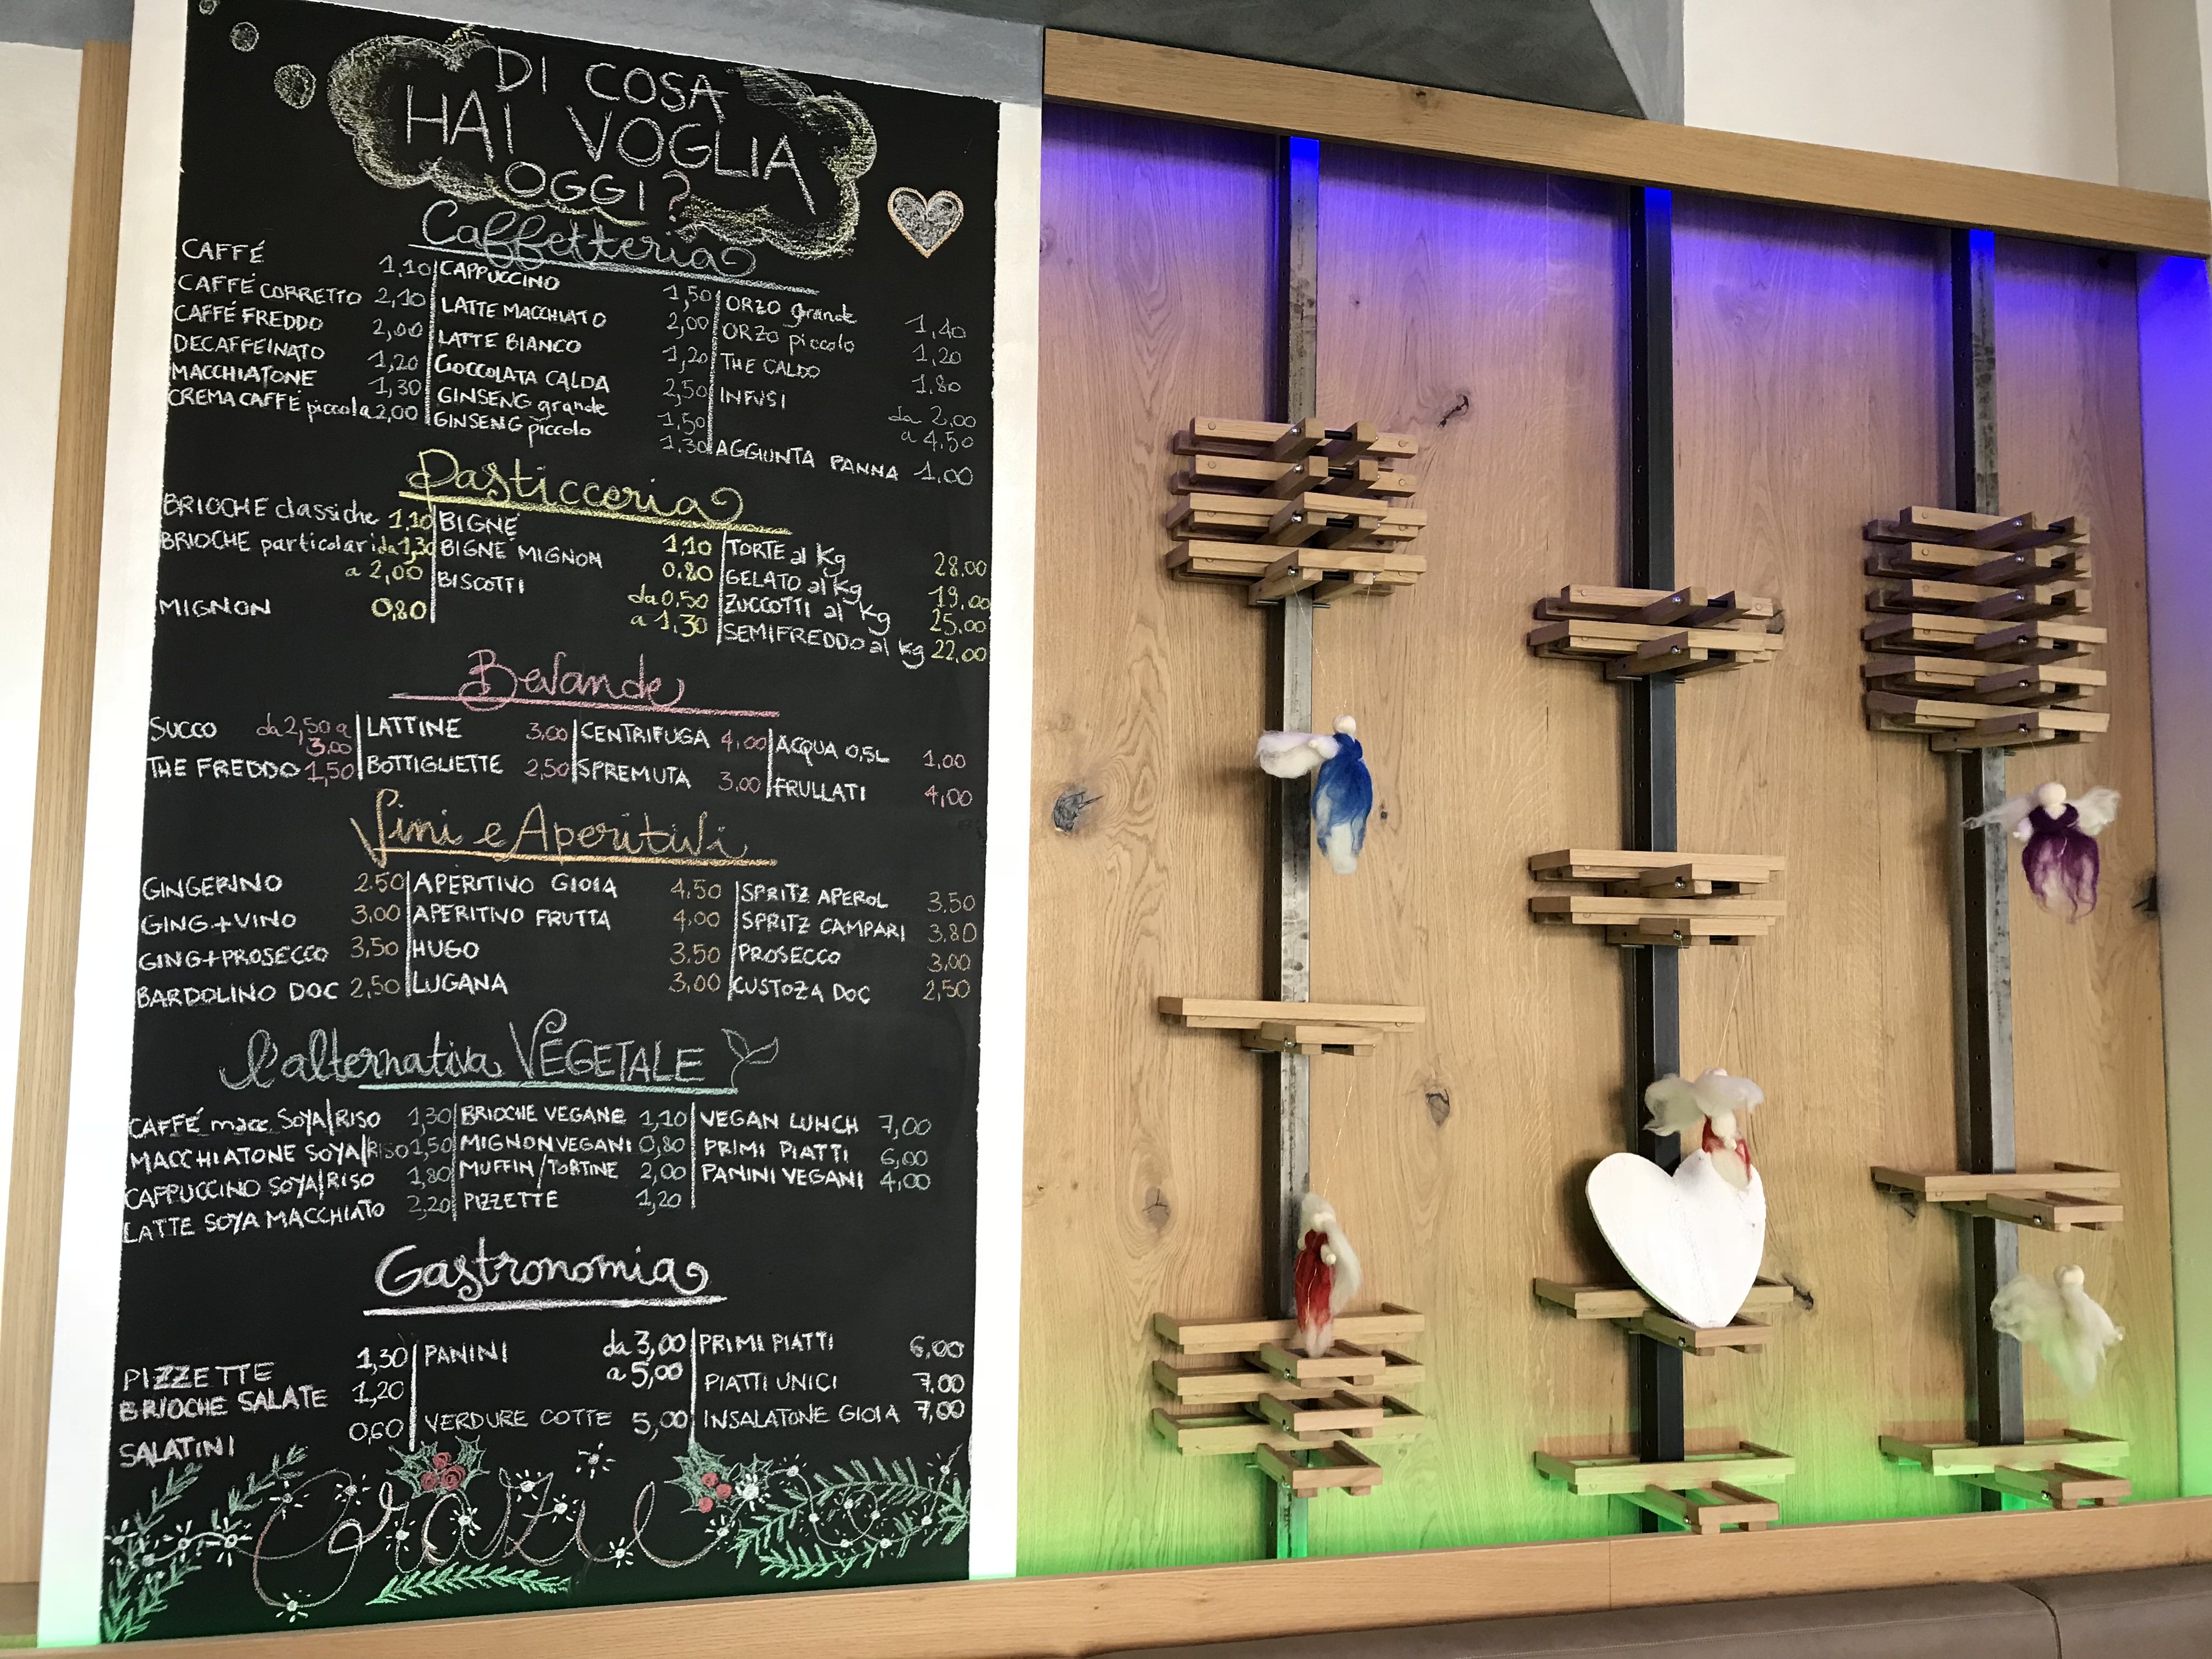 DI COSA
HAI VOGLIA
OGGI?
Caffetteria
CAFFÉ 1,10
CAFFÉ CORRETTO 2,10
CAFFÉ FREDDO 2,00
DECAFFEINATO 1,20
MACCHIATONE 1,30
CREMA CAFFÉ piccola 2,00
CAPPUCCINO 1,50
LATTE MACCHIATO 2,00
LATTE BIANCO 1,20
CIOCCOLATA CALDA 2,50
GINSENG grande 1,50
GINSENG piccolo 1.30
ORZO grande 1,40
ORZO piccolo 1,20
THE CALDO 1.80
INFUSI da 2,00
a 4,50
AGGIUNTA PANNA 1,00
Pasticceria
BRIOCHE classiche 1,10
BRIOCHE particolari da 1,30
a 2,00
MIGNON 0,80
BIGNÉ 1,10
BIGNÉ MIGNON 0.80
BISCOTTI da 0,50
a 1,30
TORTE al Kg 28.00
GELATO al Kg 19,00
ZUCCOTTI al Kg 25,00
SEMIFREDDO al kg 22,00
Bevande
SUCCO da 2,50 a
3,00
THE FREDDO 1,50
LATTINE 3,00
BOTTIGLIETTE 2,50
CENTRIFUGA 4,00
SPREMUTA 3,00
ACQUA 0,5L 1,00
FRULLATI 4,00
Vini e Aperitivi
GINGERINO 2.50
GING+VINO 3,00
GING+PROSECCO 3,50
BARDOLINO DOC 2,50
APERITIVO GIOIA 4,50
APERITIVO FRUTTA 4,00
HUGO 3.50
LUGANA 3,00
SPRITZ APEROL 3.50
SPRITZ CAMPARI 3.80
PROSECCO 3,00
CUSTOZA DOC 2,50
l'alternativa VEGETALE
CAFFÉ macc. SOYA/RISO 1,30
MACCHIATONE SOYA/RISO 1,50
CAPPUCCINO SOYA/RISO 1,80
LATTE SOYA MACCHIATO 2,20
BRIOCHE VEGANE 1,10
MIGNON VEGANI 0,80
MUFFIN/TORTINE 2,00
PIZZETTE 1,20
VEGAN LUNCH 7,00
PRIMI PIATTI 6,00
PANINI VEGANI 4,00
Gastronomia
PIZZETTE 1,30
BRIOCHE SALATE 1,20
SALATINI 0,60
PANINI da 3,00
a 5,00
VERDURE COTTE 5,00
PRIMI PIATTI 6,00
PIATTI UNICI 7.00
INSALATONE GIOIA 7,00
Grazie